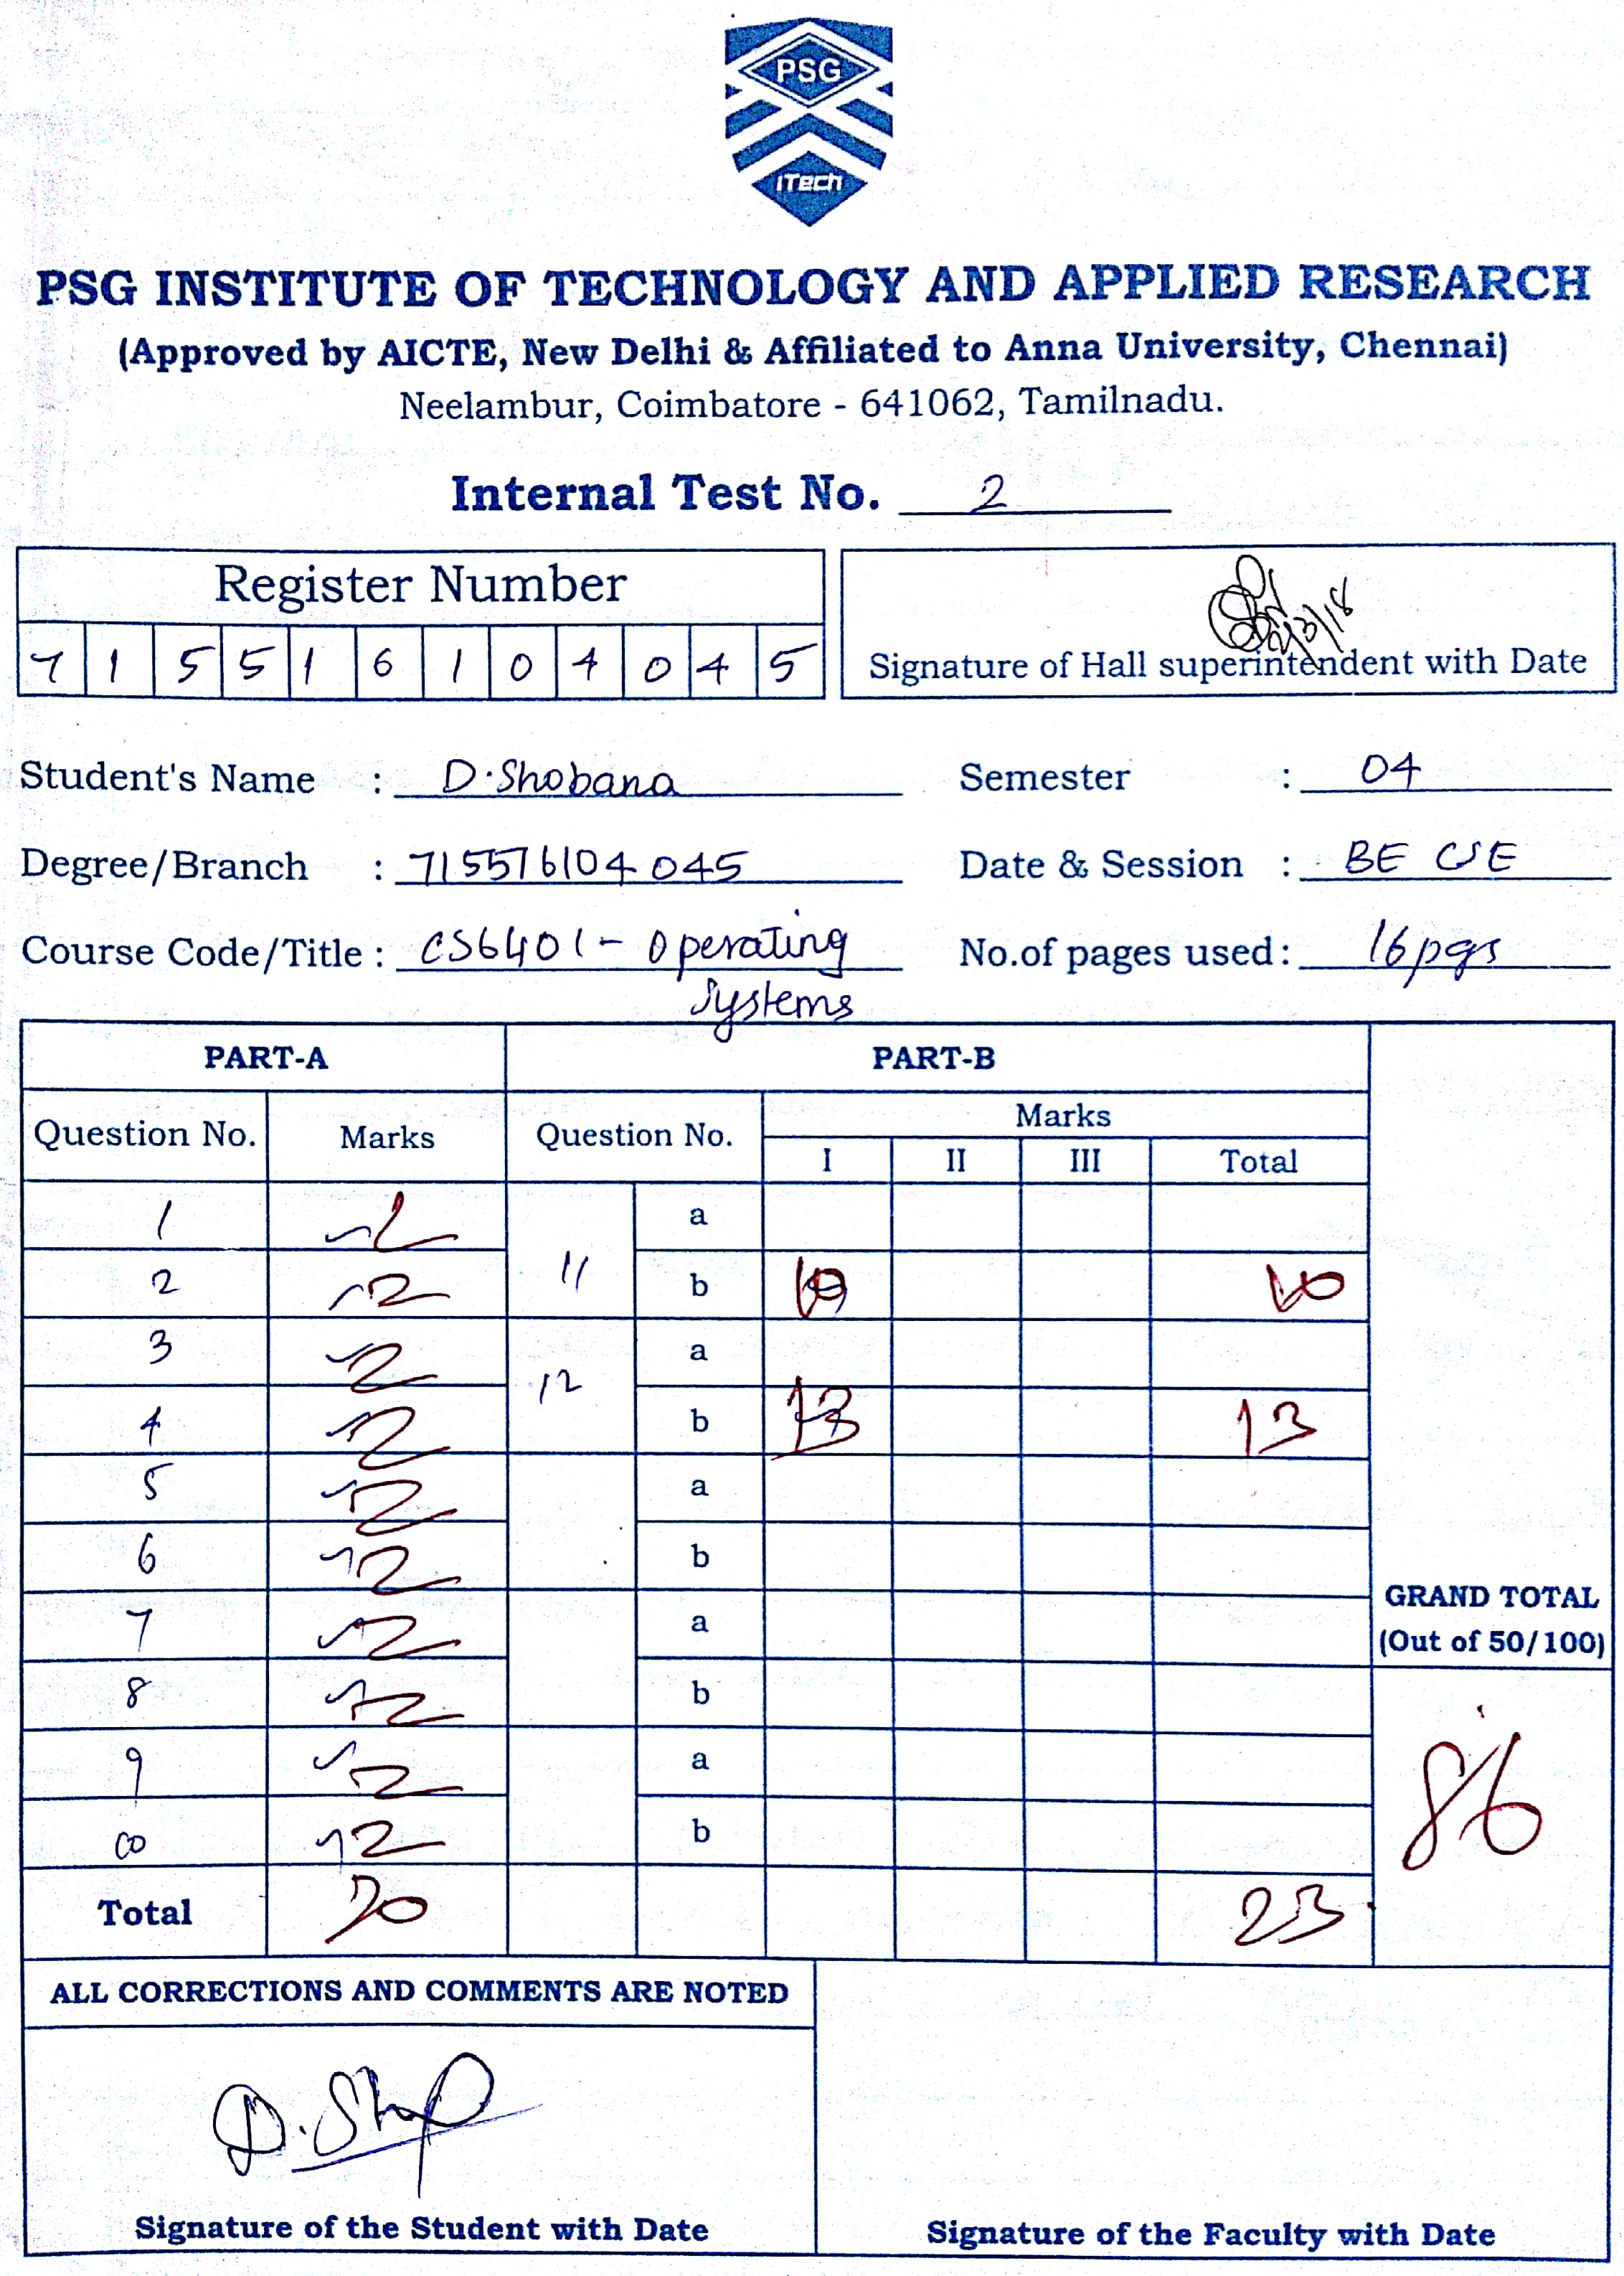 PSG
iTech
PSG INSTITUTE OF TECHNOLOGY AND APPLIED RESEARCH
(Approved by AICTE, New Delhi & Affiliated to Anna University, Chennai)
Neelambur, Coimbatore - 641062, Tamilnadu.
Internal Test No. 2
Register Number
7 1 5 5 1 6 1 0 4 0 4 5
Signature of Hall superintendent with Date
Student's Name : D. Shobana
Semester : 04
Degree/Branch : 715516104045
Date & Session : BE CSE
Course Code/Title : CS6401 - Operating
Systems
No.of pages used: 16pgs
PART-A PART-B
Question No. Marks Question No. Marks
I II III Total
1 2 11 a
2 2 b 10 10
3 2 12 a
4 2 b 13 13
5 2 a
6 2 b
7 2 a
8 2 b
9 2 a
10 2 b
Total 20 23
GRAND TOTAL
(Out of 50/100)
86
ALL CORRECTIONS AND COMMENTS ARE NOTED
Signature of the Student with Date
Signature of the Faculty with Date